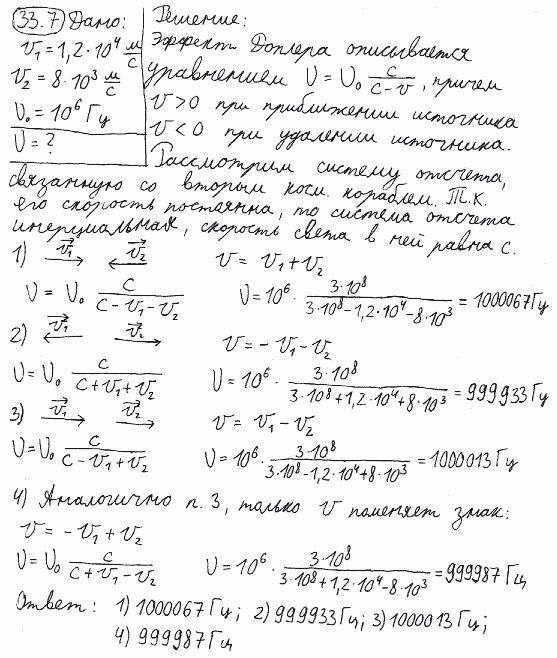 33.7 Дано:
v₁ = 1,2·10⁴ м/с
v₂ = 8·10³ м/с
υ₀ = 10⁶ Гц
υ = ?
Решение:
Эффект Доплера описывается
уравнением υ = υ₀ c/(c-v), причем
v>0 при приближении источника
v<0 при удалении источника.
Рассмотрим систему отсчета,
связанную со вторым косм. кораблем. Т.К.
его скорость постоянна, то система отсчета
инерциальная, скорость света в ней равна c.
1) v₁→ ←v₂ v = v₁+v₂
υ = υ₀ c/(c-v₁-v₂) υ=10⁶· 3·10⁸/(3·10⁸-1,2·10⁴-8·10³) = 1000067Гц
2) ←v₁ v₂→ v = -v₁-v₂
υ=υ₀ c/(c+v₁+v₂) υ=10⁶· 3·10⁸/(3·10⁸+1,2·10⁴+8·10³) = 999933Гц
3) v₁→ v₂→ v = v₁-v₂
υ=υ₀ c/(c-v₁+v₂) υ=10⁶· 3·10⁸/(3·10⁸-1,2·10⁴+8·10³) = 1000013Гц
4) Аналогично п. 3, только v поменяет знак:
v = -v₁+v₂
υ=υ₀ c/(c+v₁-v₂) υ=10⁶· 3·10⁸/(3·10⁸+1,2·10⁴-8·10³) = 999987Гц
Ответ: 1) 1000067Гц; 2) 999933Гц; 3) 1000013Гц;
4) 999987Гц